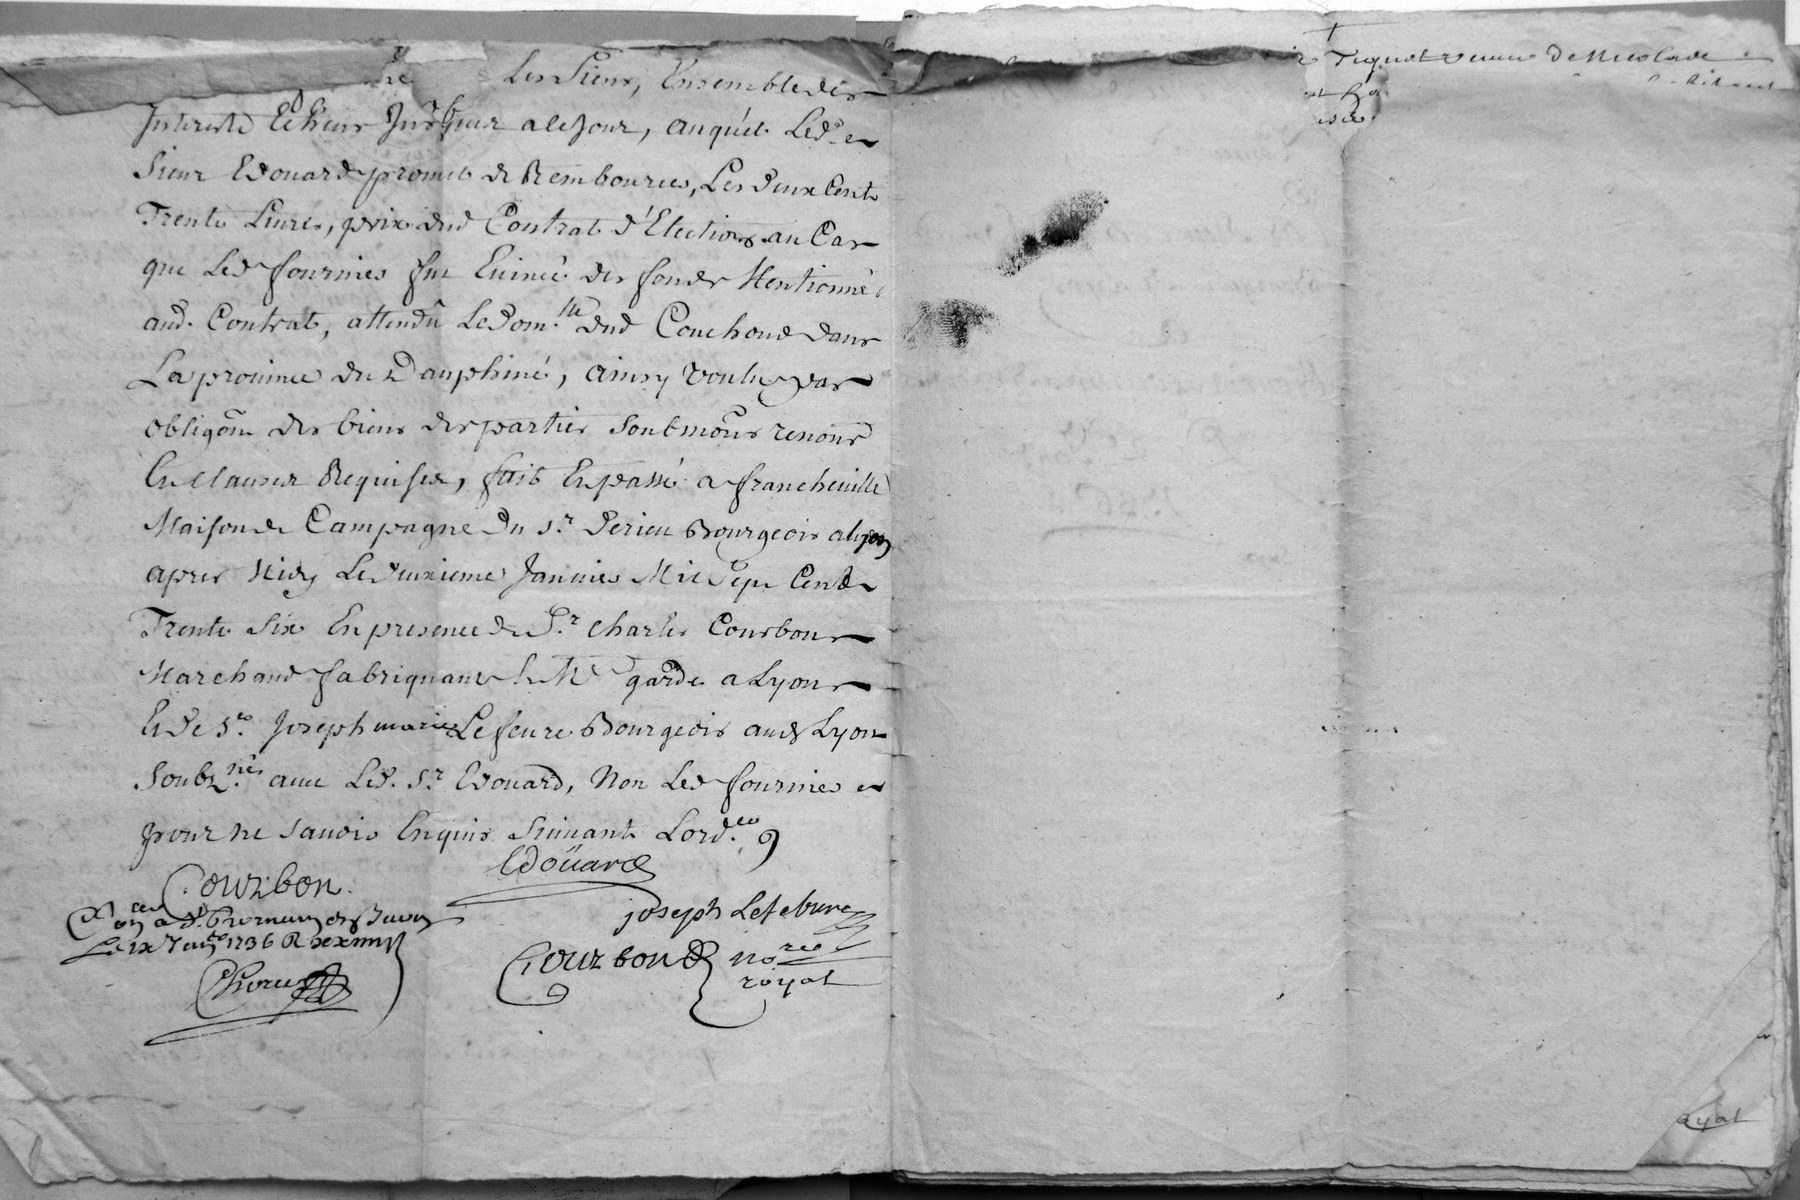 Les siens, Ensemble des
Interests Echeus Jusques a ce Jour, auquel Led. e
Sieur Edouard promet de Rembourcer, Les deux Cents
Trente Livres, prix dud Contrat d'Election au Cas
que Led fournier fut Evincé des fonds Mentionné
aud. Contrat, attendu Le dom.lle dud Couchoud dans
La province du Dauphiné, ainsy voulu par
obligaõn des biens des parties soubmõns renõns
Et clauses Requises, fait Et passé a francheville
Maison de Campagne du s.r Perieu Bourgeois a Lyon
apres Midy Le deuxieme Janvier Mil sept Cents
Trente six En presence de S.r Charles Courbon
Marchand fabriquant & M.e garde a Lyon
Et de s.r Joseph marie Lefevre Bourgeois aud Lyon
Soubz.nés avec Led. s.r Edouard, Non Led fournier
pour ne scavoir Enquis suivant Lord.ce
Edoüard
Courbon
joseph Lefebvre
Le ix Janv 1736
Courbon no.re
royal
Tiquet veuve de Nicolas
oyal